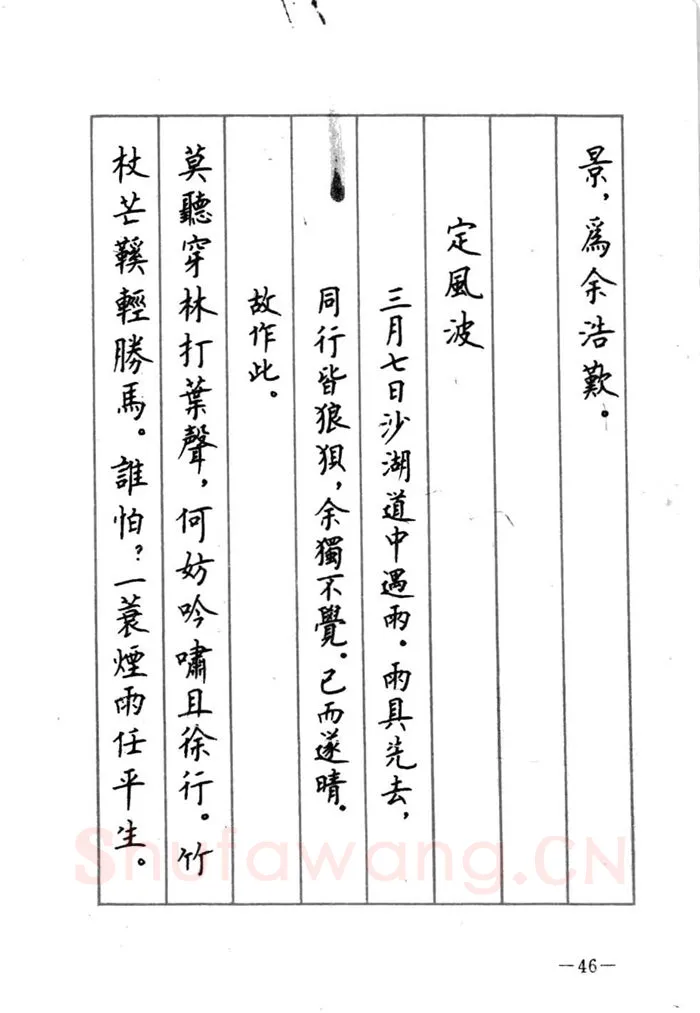 景，爲余浩歎。
定風波
三月七日沙湖道中遇雨。雨具先去，
同行皆狼狽，余獨不覺。已而遂晴．
故作此。
莫聽穿林打葉聲，何妨吟嘯且徐行。竹
杖芒鞵輕勝馬。誰怕？一蓑煙雨任平生。
Shufawang.CN
—46—